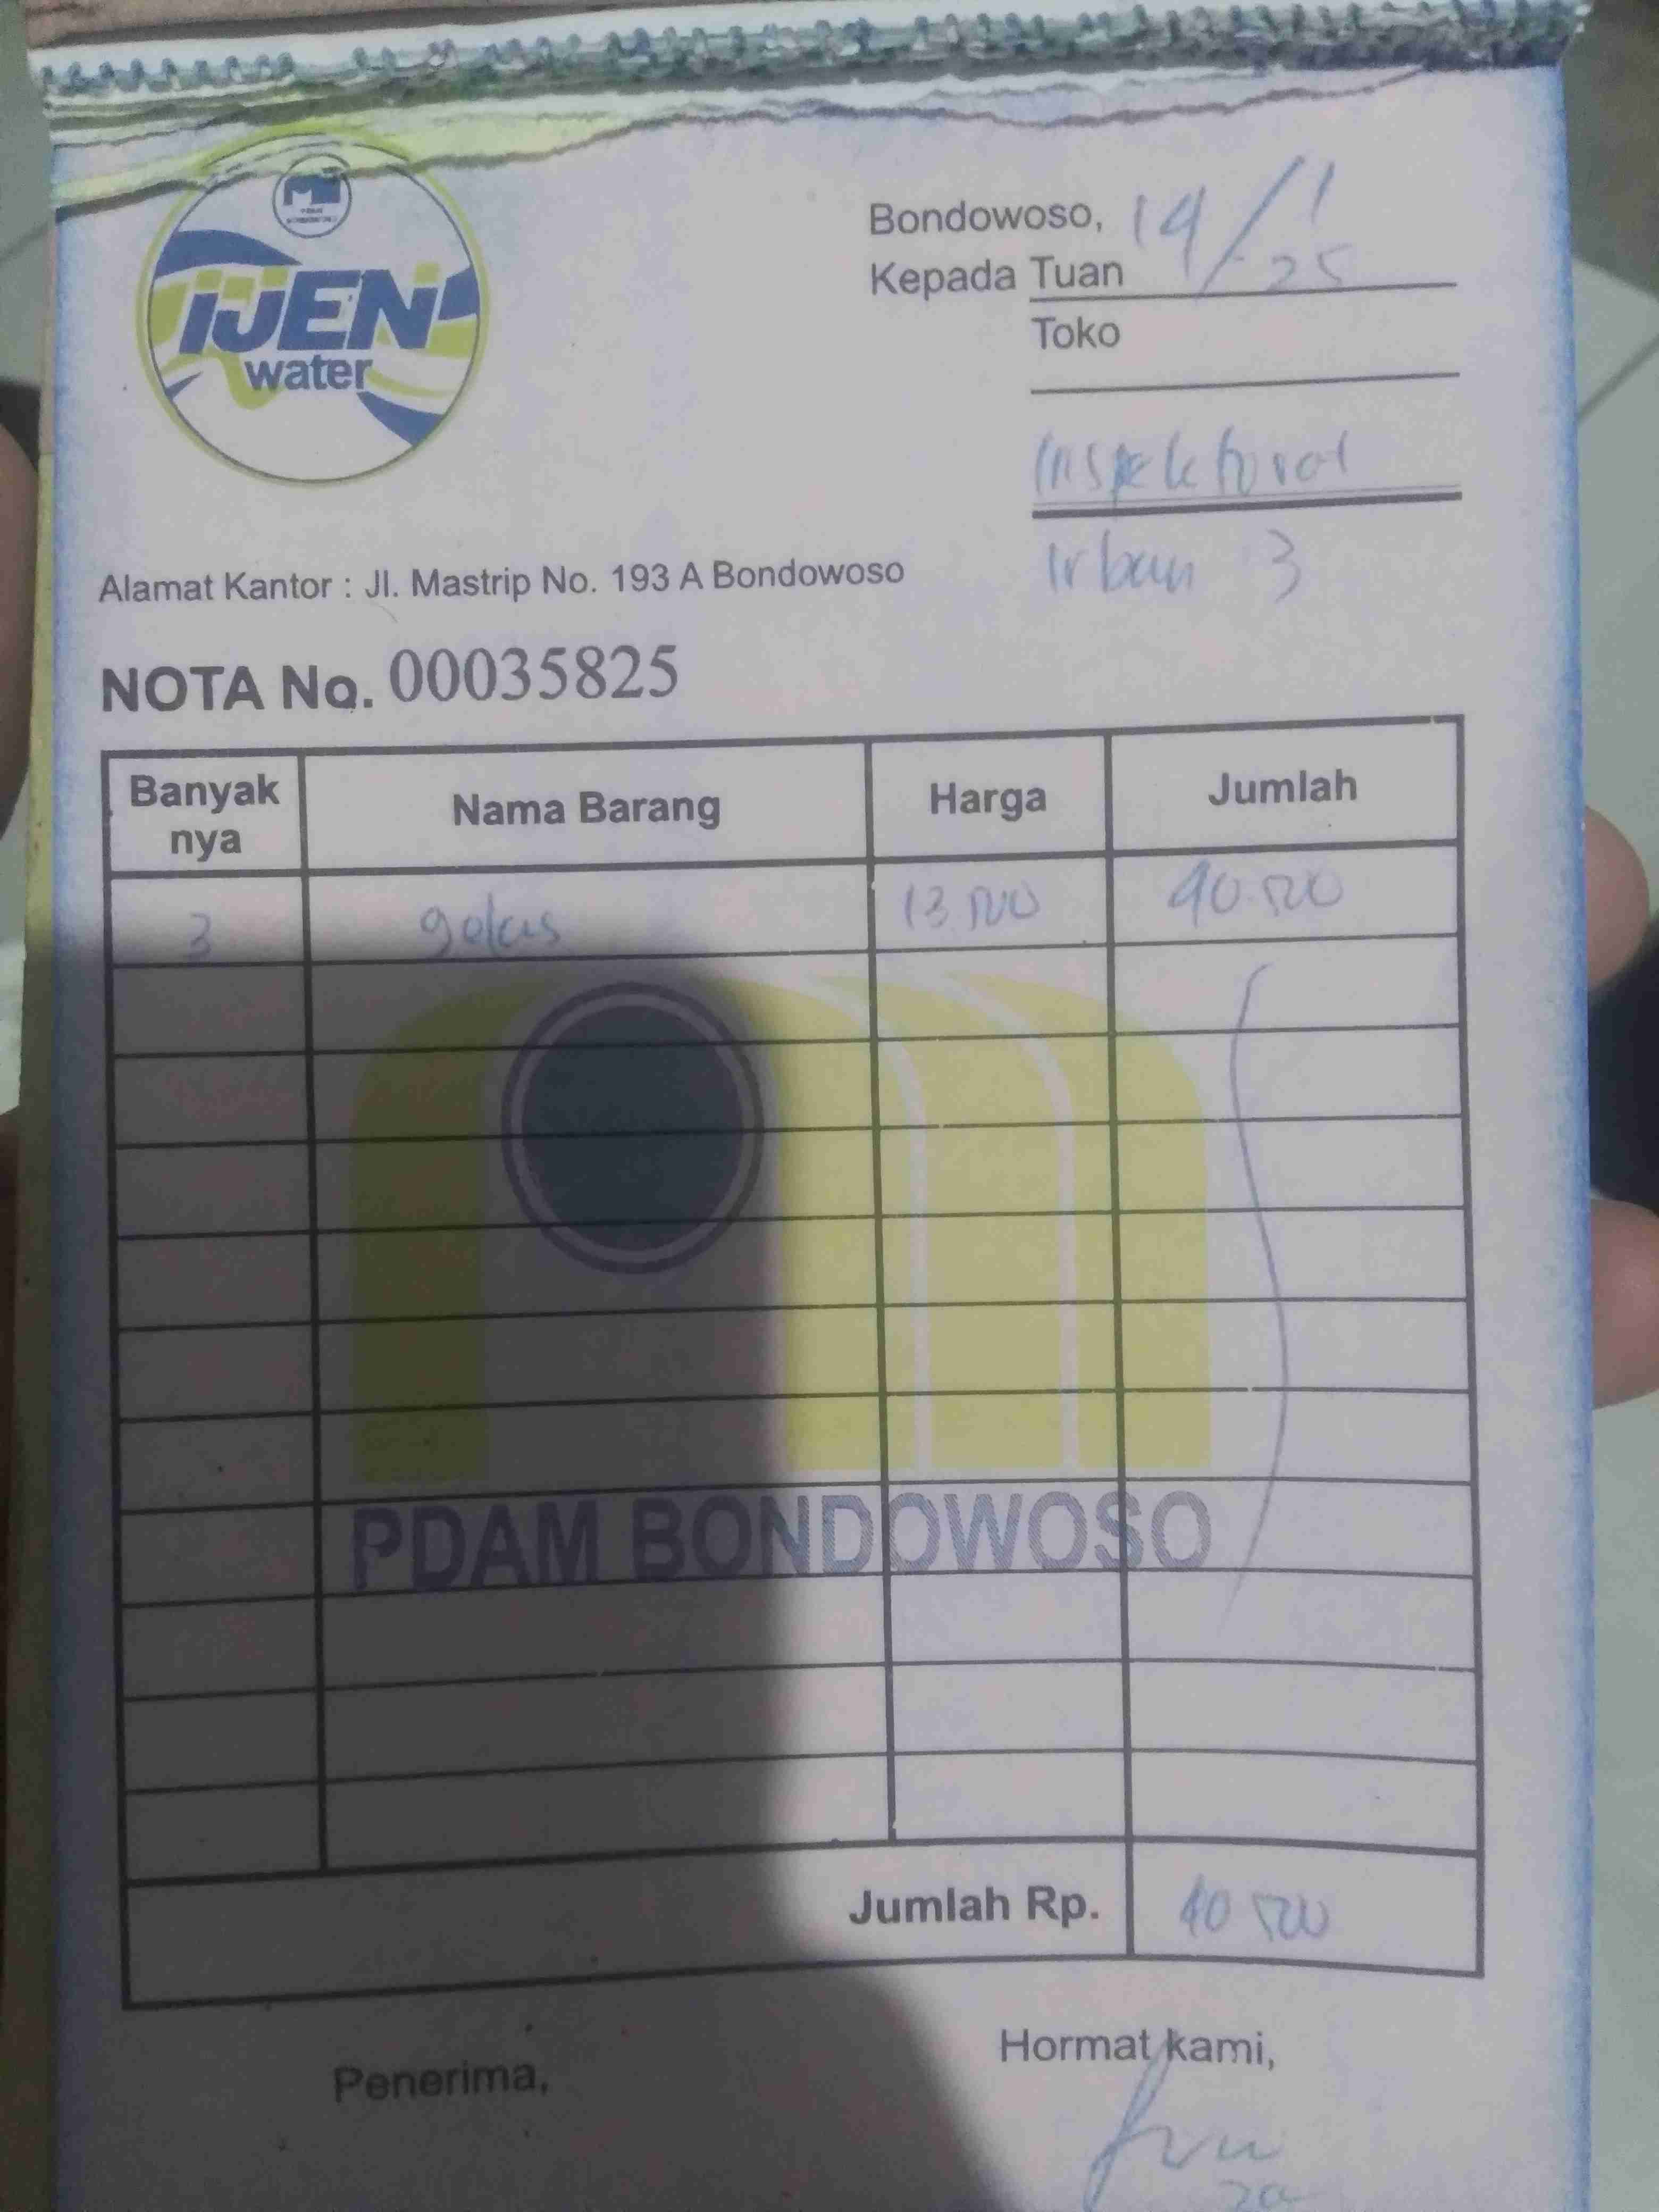 PDAM
IJEN
water
Bondowoso, 14/1
25
Kepada Tuan
Toko
Inspektorat
Irban 3
Alamat Kantor : Jl. Mastrip No. 193 A Bondowoso
NOTA No. 00035825
Banyak nya Nama Barang Harga Jumlah
3 gelas 13.500 40.500
PDAM BONDOWOSO
Jumlah Rp. 40.500
Penerima, Hormat kami,